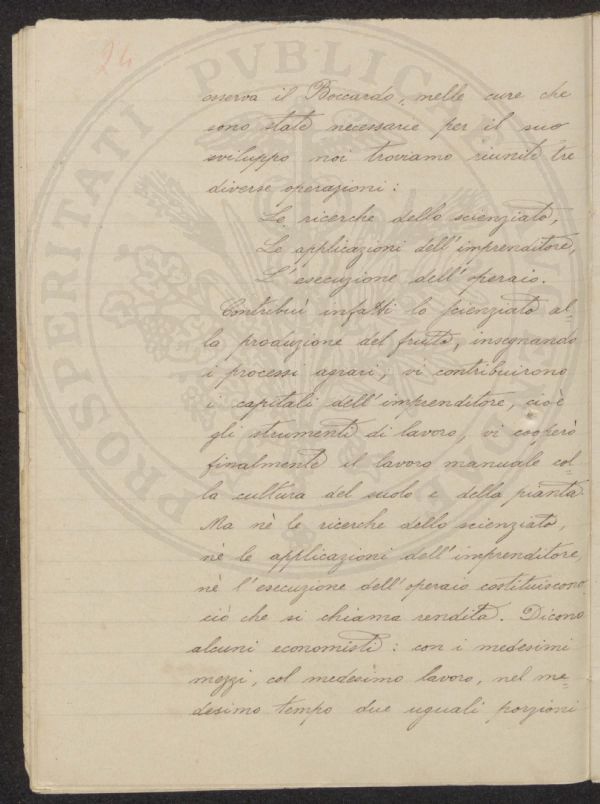 24
osserva il Boccardo, nelle cure che
sono state necessarie per il suo
sviluppo noi troviamo riunite tre
diverse operazioni:
Le ricerche dello scienziato,
Le applicazioni dell'imprenditore,
L'esecuzione dell'operaio.
Contribuì infatti lo scienziato al=
la produzione del frutto, insegnando
i processi agrari, vi contribuirono
i capitali dell'imprenditore, cioè
gli strumenti di lavoro, vi cooperò
finalmente il lavoro manuale col=
la cultura del suolo e della pianta.
Ma nè le ricerche dello scienziato,
nè le applicazioni dell'imprenditore,
nè l'esecuzione dell'operaio costituiscono
ciò che si chiama rendita. Dicono
alcuni economisti: con i medesimi
mezzi, col medesimo lavoro, nel me=
desimo tempo due uguali porzioni
PROSPERITATI PVBLICAE